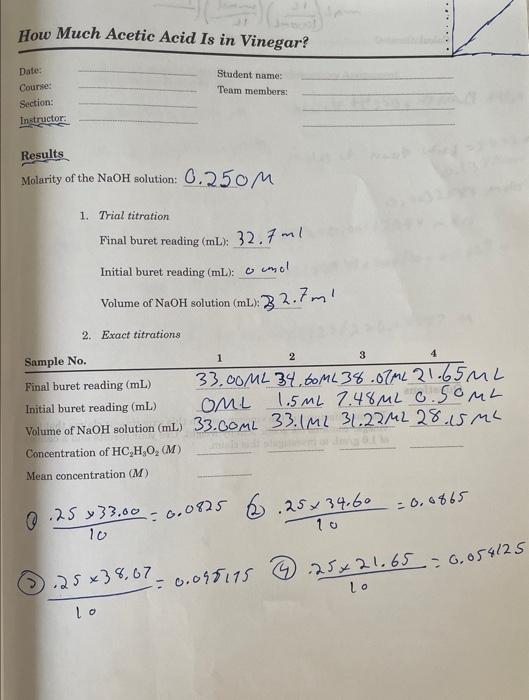 How Much Acetic Acid Is in Vinegar?
Date:
Student name:
Course:
Team members:
Section:
Instructor:
Results
Molarity of the NaOH solution: 0.250M
1. Trial titration
Final buret reading (mL): 32.7ml
Initial buret reading (mL): 0
Volume of NaOH solution (mL): 32.7ml
2. Exact titrations
Sample No. 1 2 3 4
Final buret reading (mL) 33.00ML 34.60ML 38.07ML 21.65ML
Initial buret reading (mL) 0ML 1.5ML 7.48ML 0.50ML
Volume of NaOH solution (mL) 33.00ML 33.1ML 31.22ML 28.15ML
Concentration of HC₂H₃O₂ (M)
Mean concentration (M)
① .25 x 33.00 / 10 = 0.0825 ② .25 x 34.60 / 10 = 0.0865
③ .25 x 38.07 / 10 = 0.095175 ④ .25 x 21.65 / 10 = 0.054125